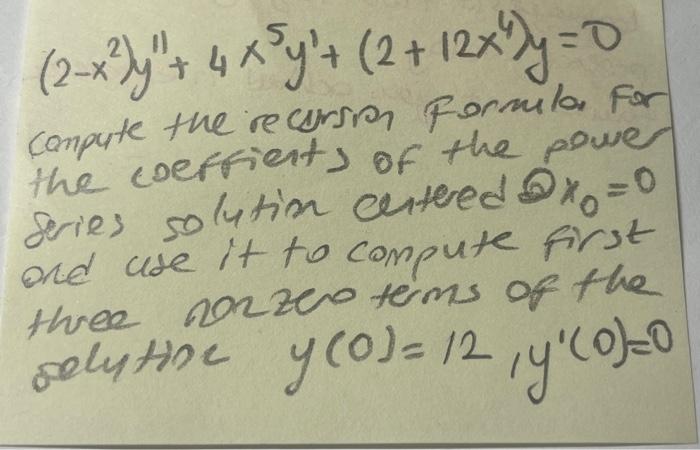 (2-x²)y" + 4x⁵y' + (2+12x⁴)y=0
compute the recursion formula for
the coeffients of the power
series solution centered @ x₀=0
and use it to compute first
three nonzero terms of the
solution y(0)=12, y'(0)=0